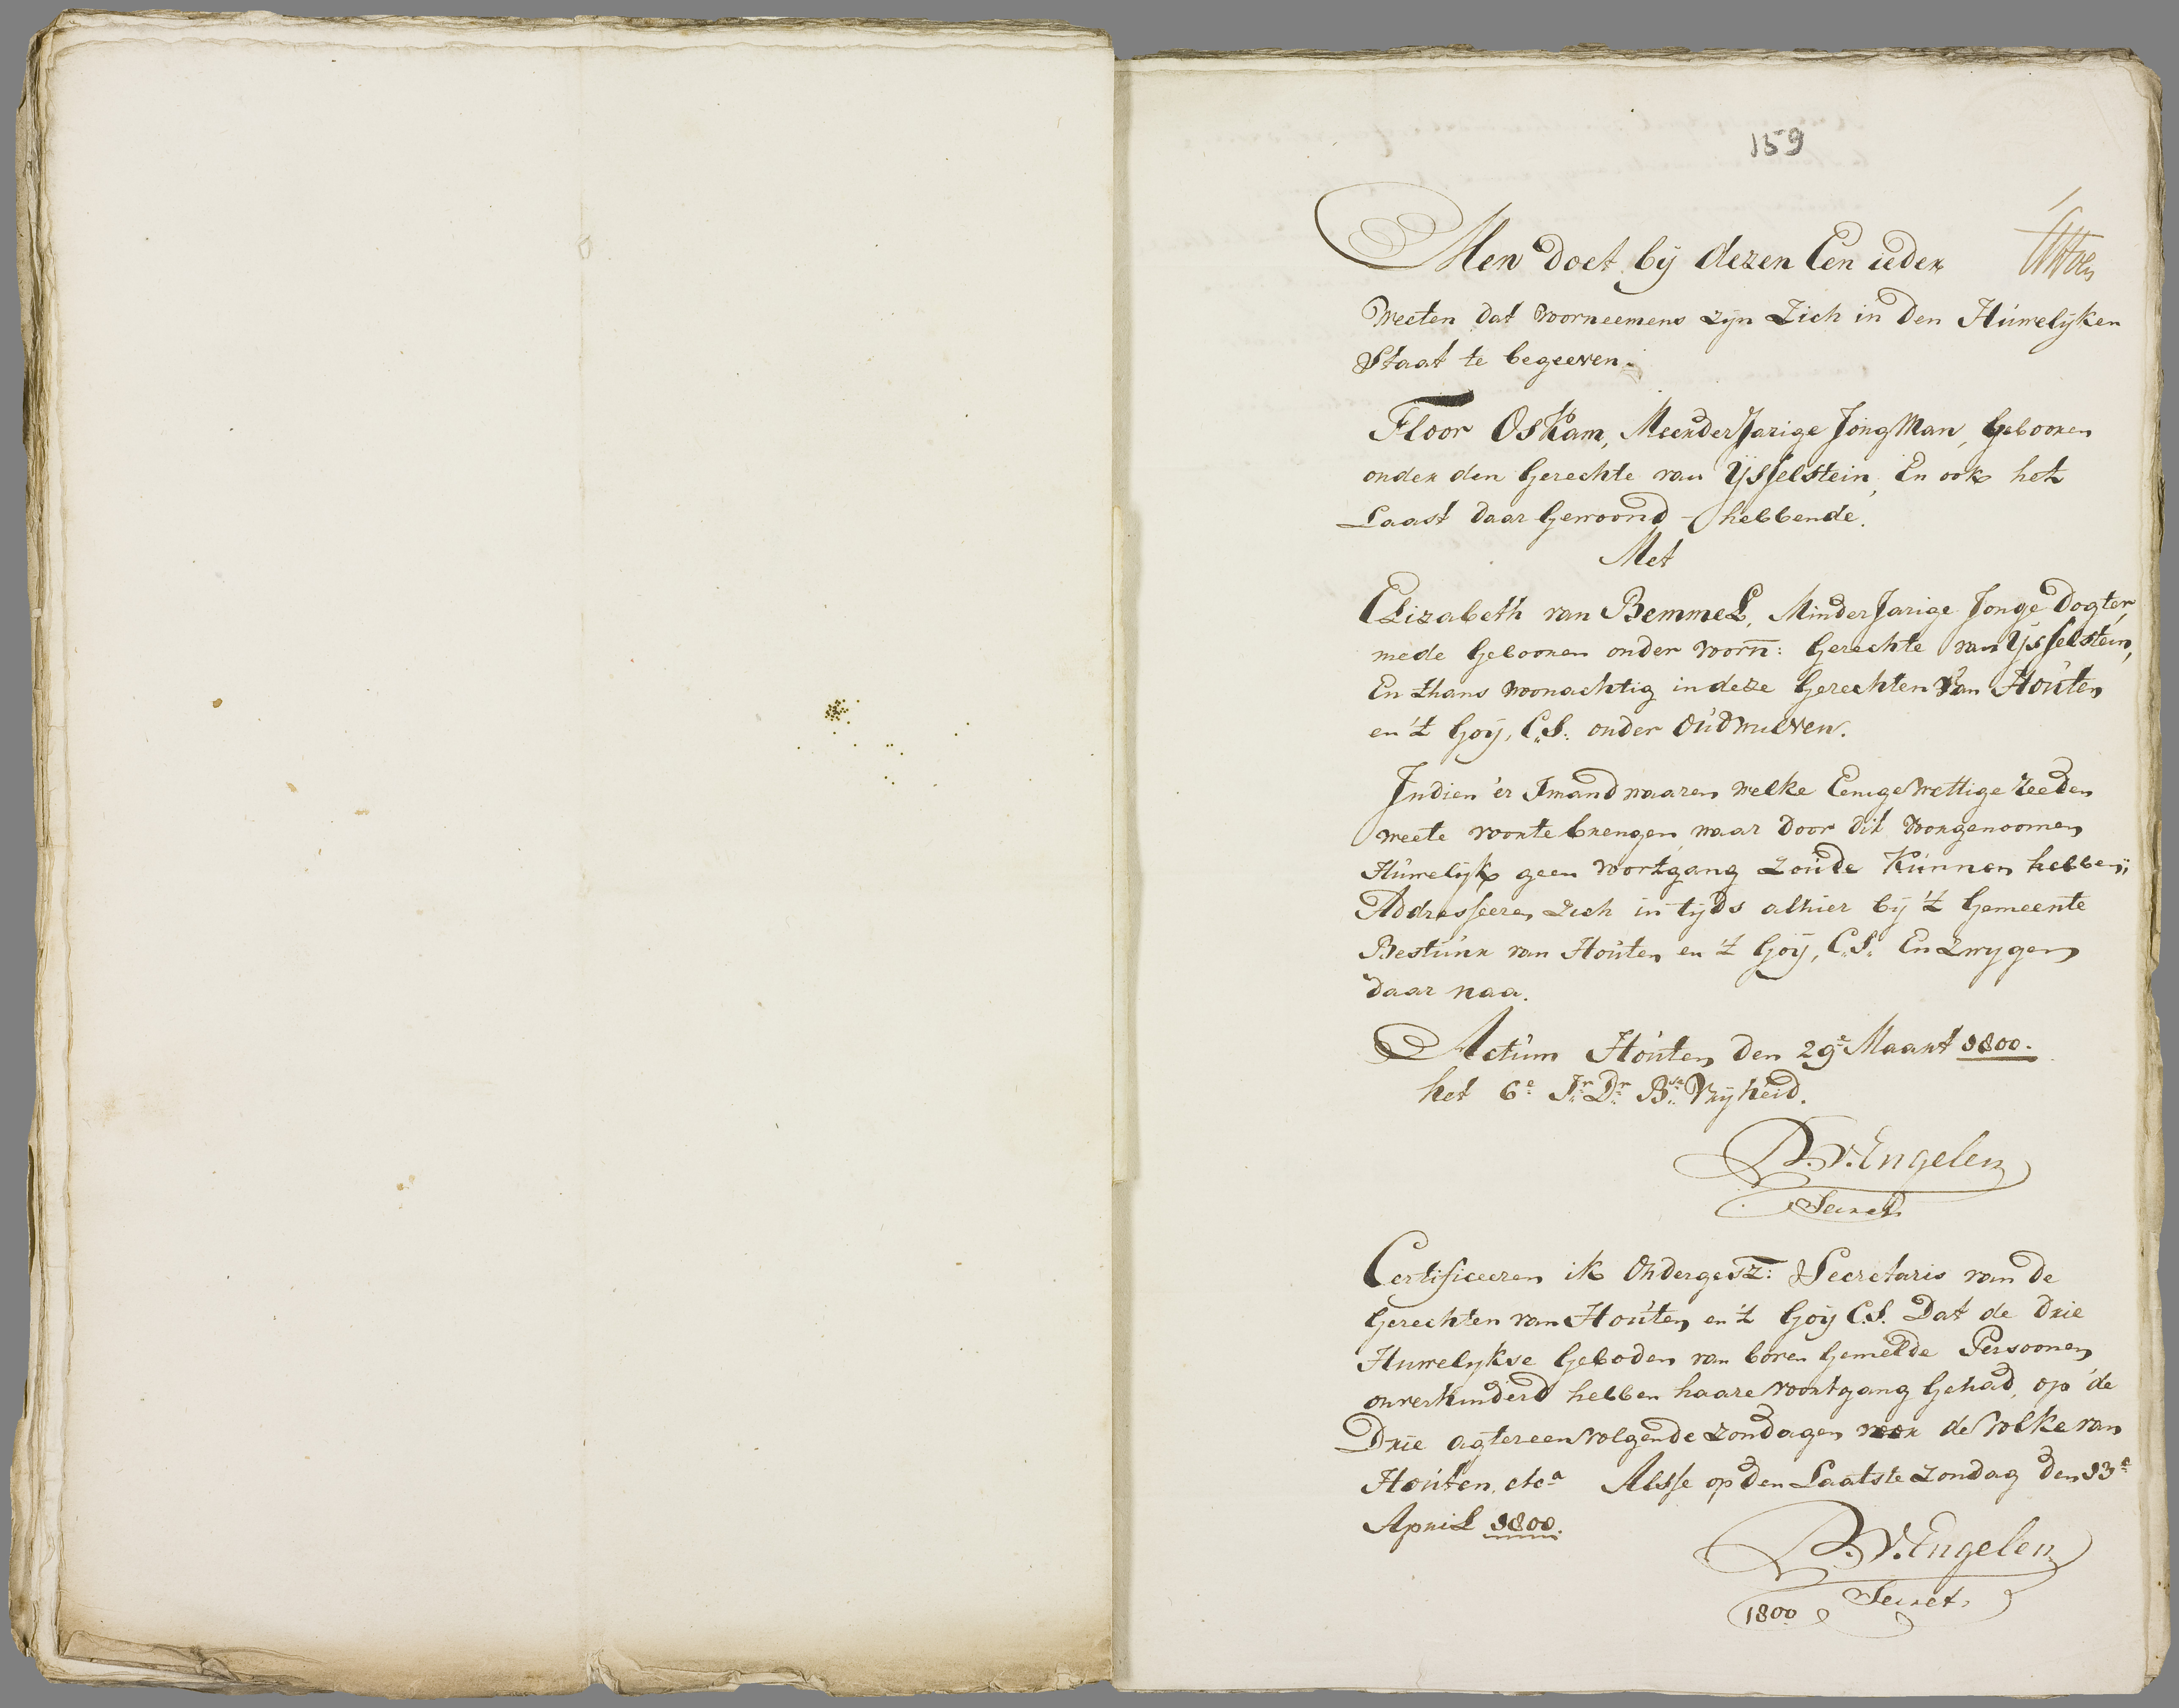 159
Men doet bij dezen Een ieder
Weeten dat voorneemens zijn Zich in den Húwelijken
Staat te begeeven.
Floor Oskam, Meerderjarige JongMan, Gebooren
onder den Gerechte van Ysselstein, En ook het
Laast daar Gewoond - hebbende.
Met
Elizabeth van Bemmel, Minderjarige Jonge Dogter,
mede Gebooren onder voorn: Gerechte van Ysselstein,
En thans woonachtig in deze Gerechten Van Hoúten
en 't Goij, C.S. onder Oúdwulven.
Indien 'er Imand waaren welke Eenige Wettige Reeden
weete voorte brengen, waar door dit Voorgenoomen
Húwelijk geen voortgang Zoúde Kúnnen hebben;
Addresseeren Zich in tijds alhier bij 't Gemeente
Bestúúr van Hoúten en 't Goij, C.S. En Zwygen
daar naa.
Actúm Hoúten den 29e Maart 1800.
het 6e Jr Dr Bse Vryheid.
D. V. Engelen
Secret.
Certificeeren ik Ondergesz: Secretaris van de
Gerechten van Hoúten en 't Goij C.S. Dat de Drie
Huwelykse Geboden van boven Gemelde Persoonen
onverhinderd hebben haare Voortgang Gehad, op de
Drie agtereenvolgende Zondagen voor de Volke van
Hoúten etca Alsse op den Laatste Zondag den 13e
April 1800.
D. V. Engelen
Secret.
1800